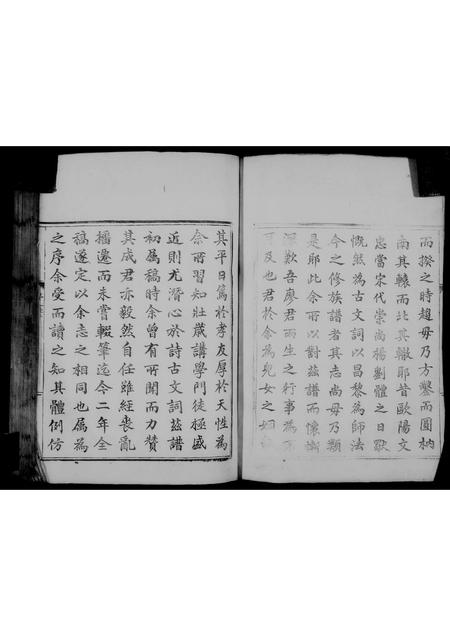 而揆之時趨毋乃方鑿而圓枘
南其轅而北其轍耶昔歐陽文
忠當宋代崇尚楊劉體之日歐
慨然為古文詞以昌黎為師法
今之修族譜者其志尚毋乃類
是耶此余所以對茲譜而懷慚
深歎吾廖君而生之行事為不
可及也君於余為兒女之姻
其平日篤於孝友厚於天性為
余所習知壯歲講學門徒極盛
近則尤潛心於詩古文詞茲譜
初属稿時余曾有所聞而力贊
其成君亦毅然自任雖經喪亂
播遷而未嘗輟筆迄今二年全
稿遂定以余志之相同也属為
之序余受而讀之知其體例仿